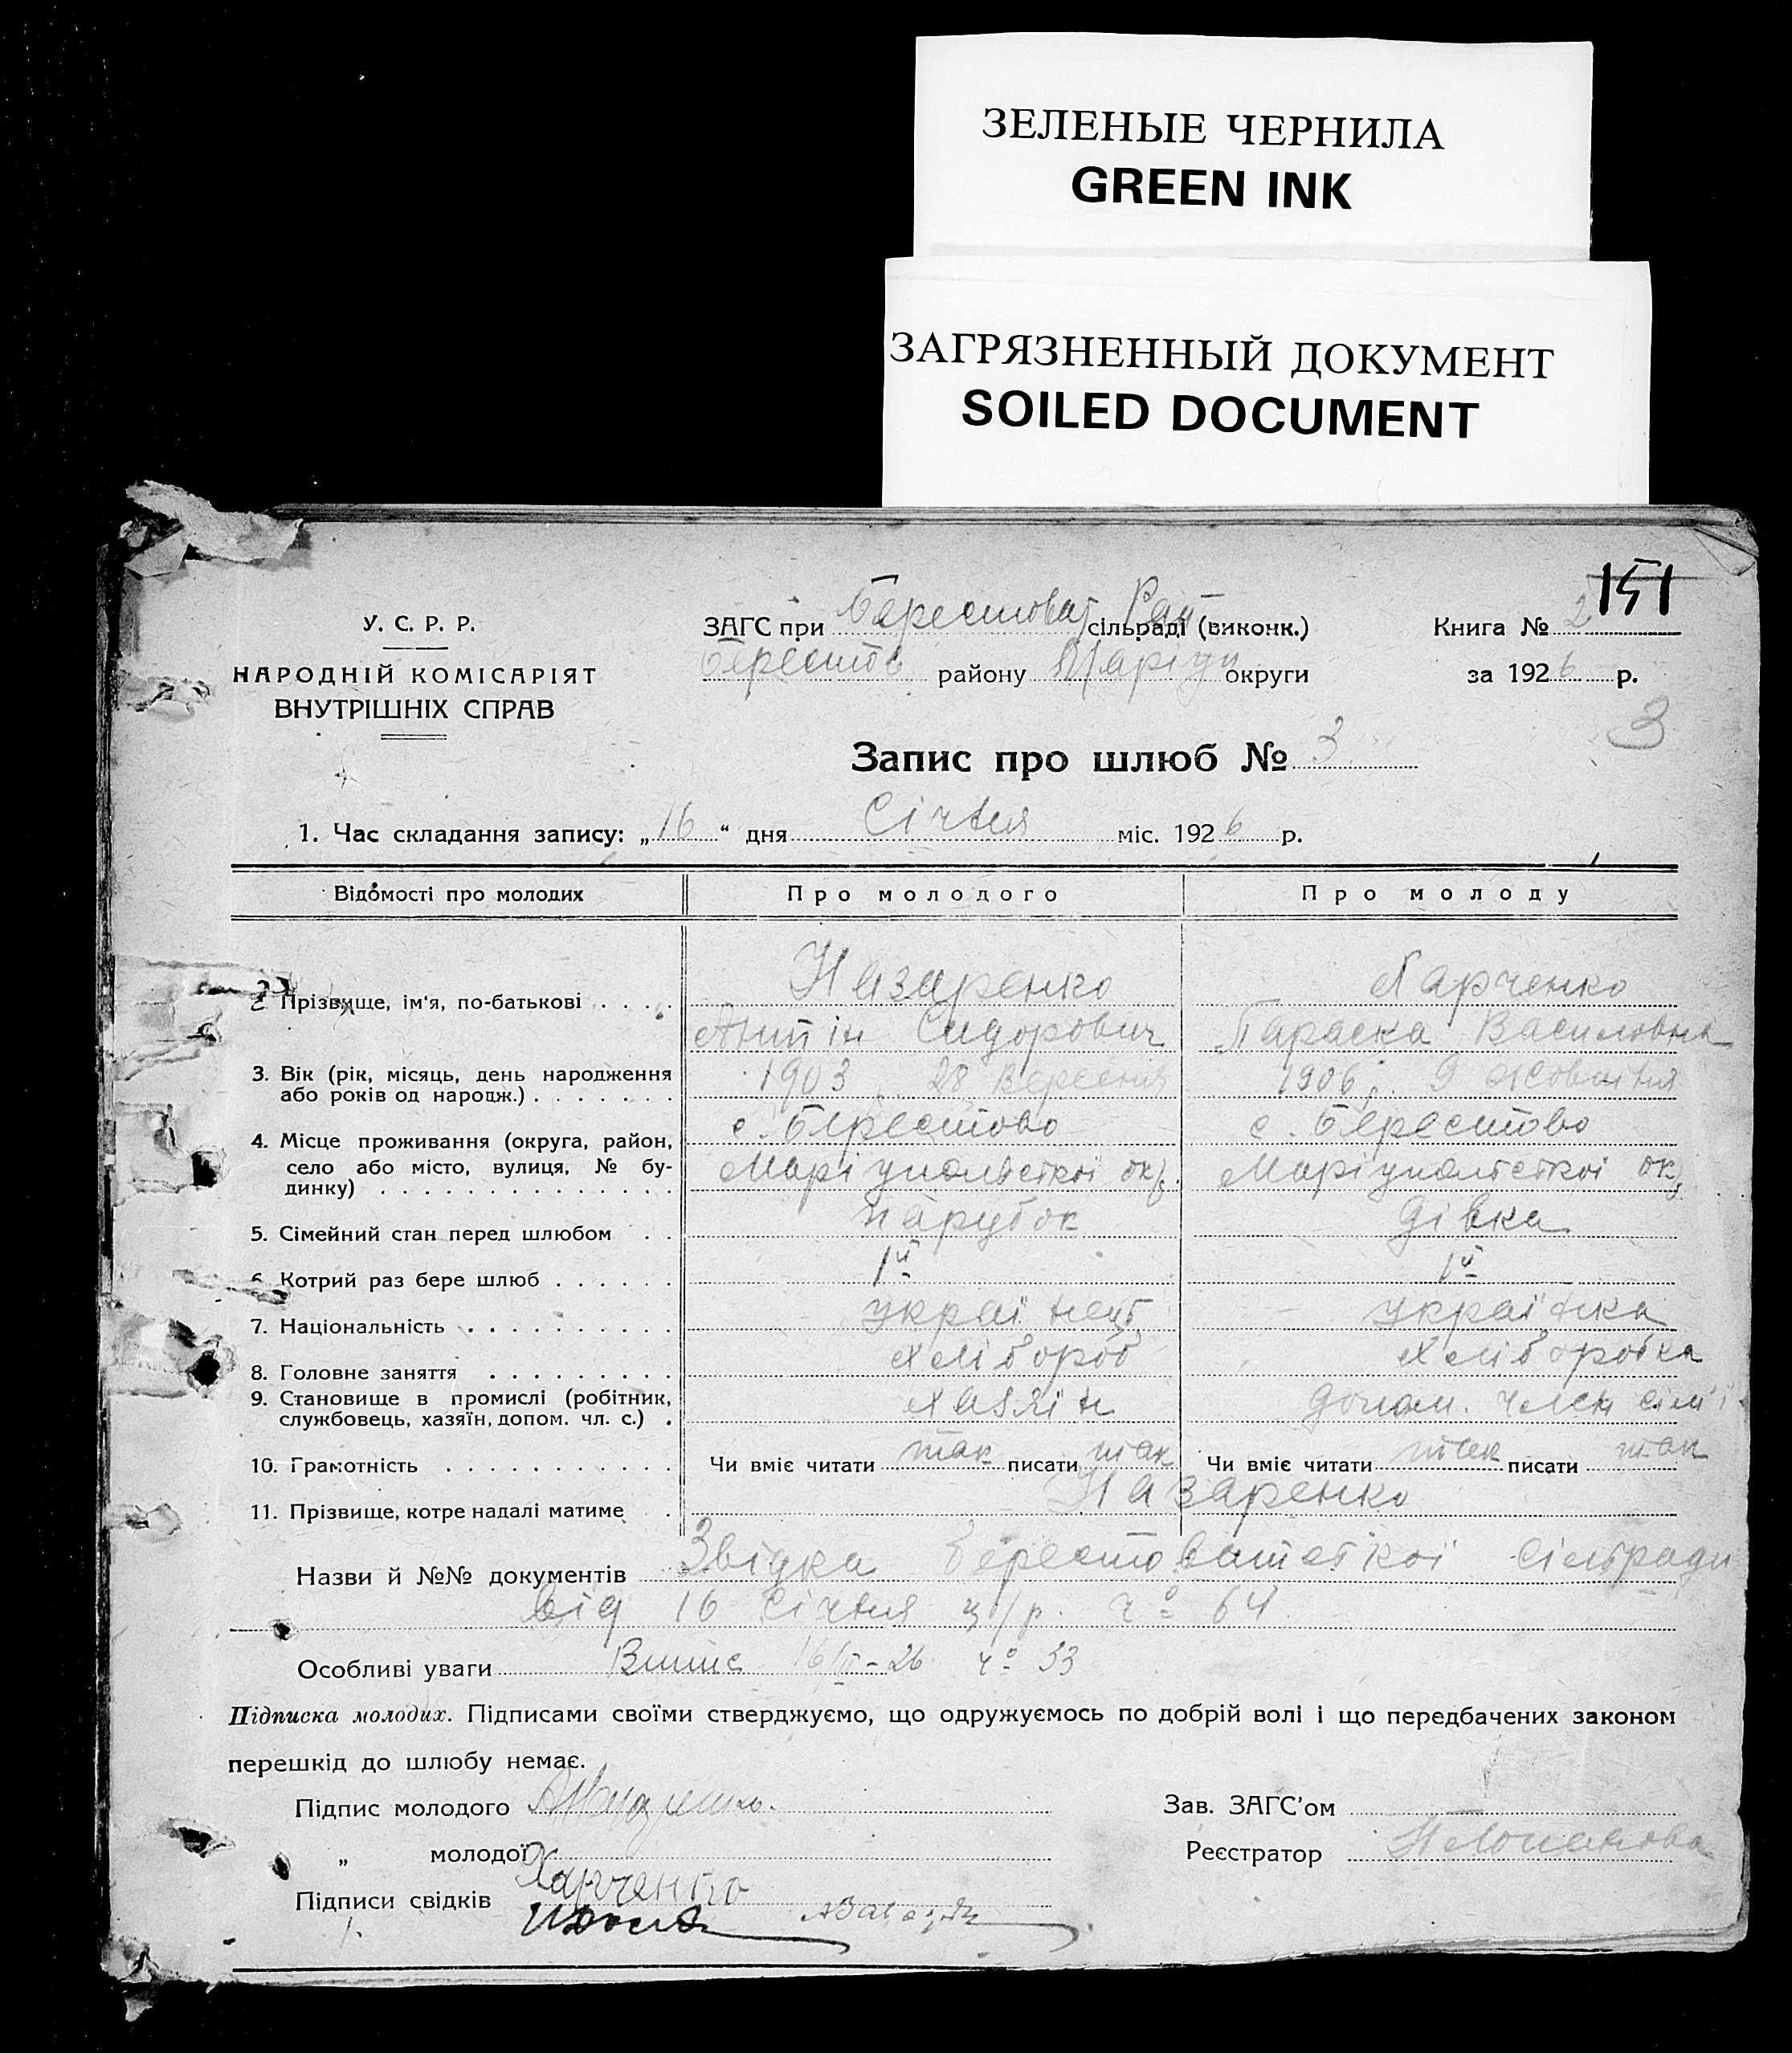 ЗЕЛЕНЫЕ ЧЕРНИЛА
GREEN INK
ЗАГРЯЗНЕННЫЙ ДОКУМЕНТ
SOILED DOCUMENT
151
У. С. Р. Р.
НАРОДНІЙ КОМІСАРІЯТ
ВНУТРІШНІХ СПРАВ
ЗАГС при Берестоват Рай сільраді (виконк.)
Берестів району Маріуп округи
Книга № 2
за 1926 р.
3
Запис про шлюб № 3
1. Час складання запису: „16“ дня Січня міс. 1926 р.
Відомості про молодих Про молодого Про молоду
2. Прізвище, ім'я, по-батькові . . . . Назаренко Харченко
Антін Сидорович Параска Василовна
3. Вік (рік, місяць, день народження 1903 28 Вересня 1906 9 Жовтня
або років од народж.) . . . . . . .
с. Берестово с. Берестово
4. Місце проживання (округа, район, село або місто, вулиця, № будинку) Маріупольсткої окр. Маріупольсткої окр
5. Сімейний стан перед шлюбом . . парубок дівка
6. Котрий раз бере шлюб . . . . . . 1й 1й
7. Національність . . . . . . . . . . українець українка
8. Головне заняття . . . . . . . . . хлібороб хліборобка
9. Становище в промислі (робітник, службовець, хазяїн, допом. чл. с.) . хазяїн допом. член сім'ї
10. Грамотність . . . . . . . . . . . Чи вміє читати так писати так Чи вміє читати так писати так
11. Прізвище, котре надалі матиме . Назаренко
Назви й №№ документів Звідка берестоватсткої сільради
від 16 Січня ц/р. ч° 64
Особливі уваги Випис 16/II-26 ч° 33
Підписка молодих. Підписами своїми стверджуємо, що одружуємось по добрій волі і що передбачених законом
перешкід до шлюбу немає.
Підпис молодого
Зав. ЗАГС'ом
„ молодої Харченко
Реєстратор
Підписи свідків